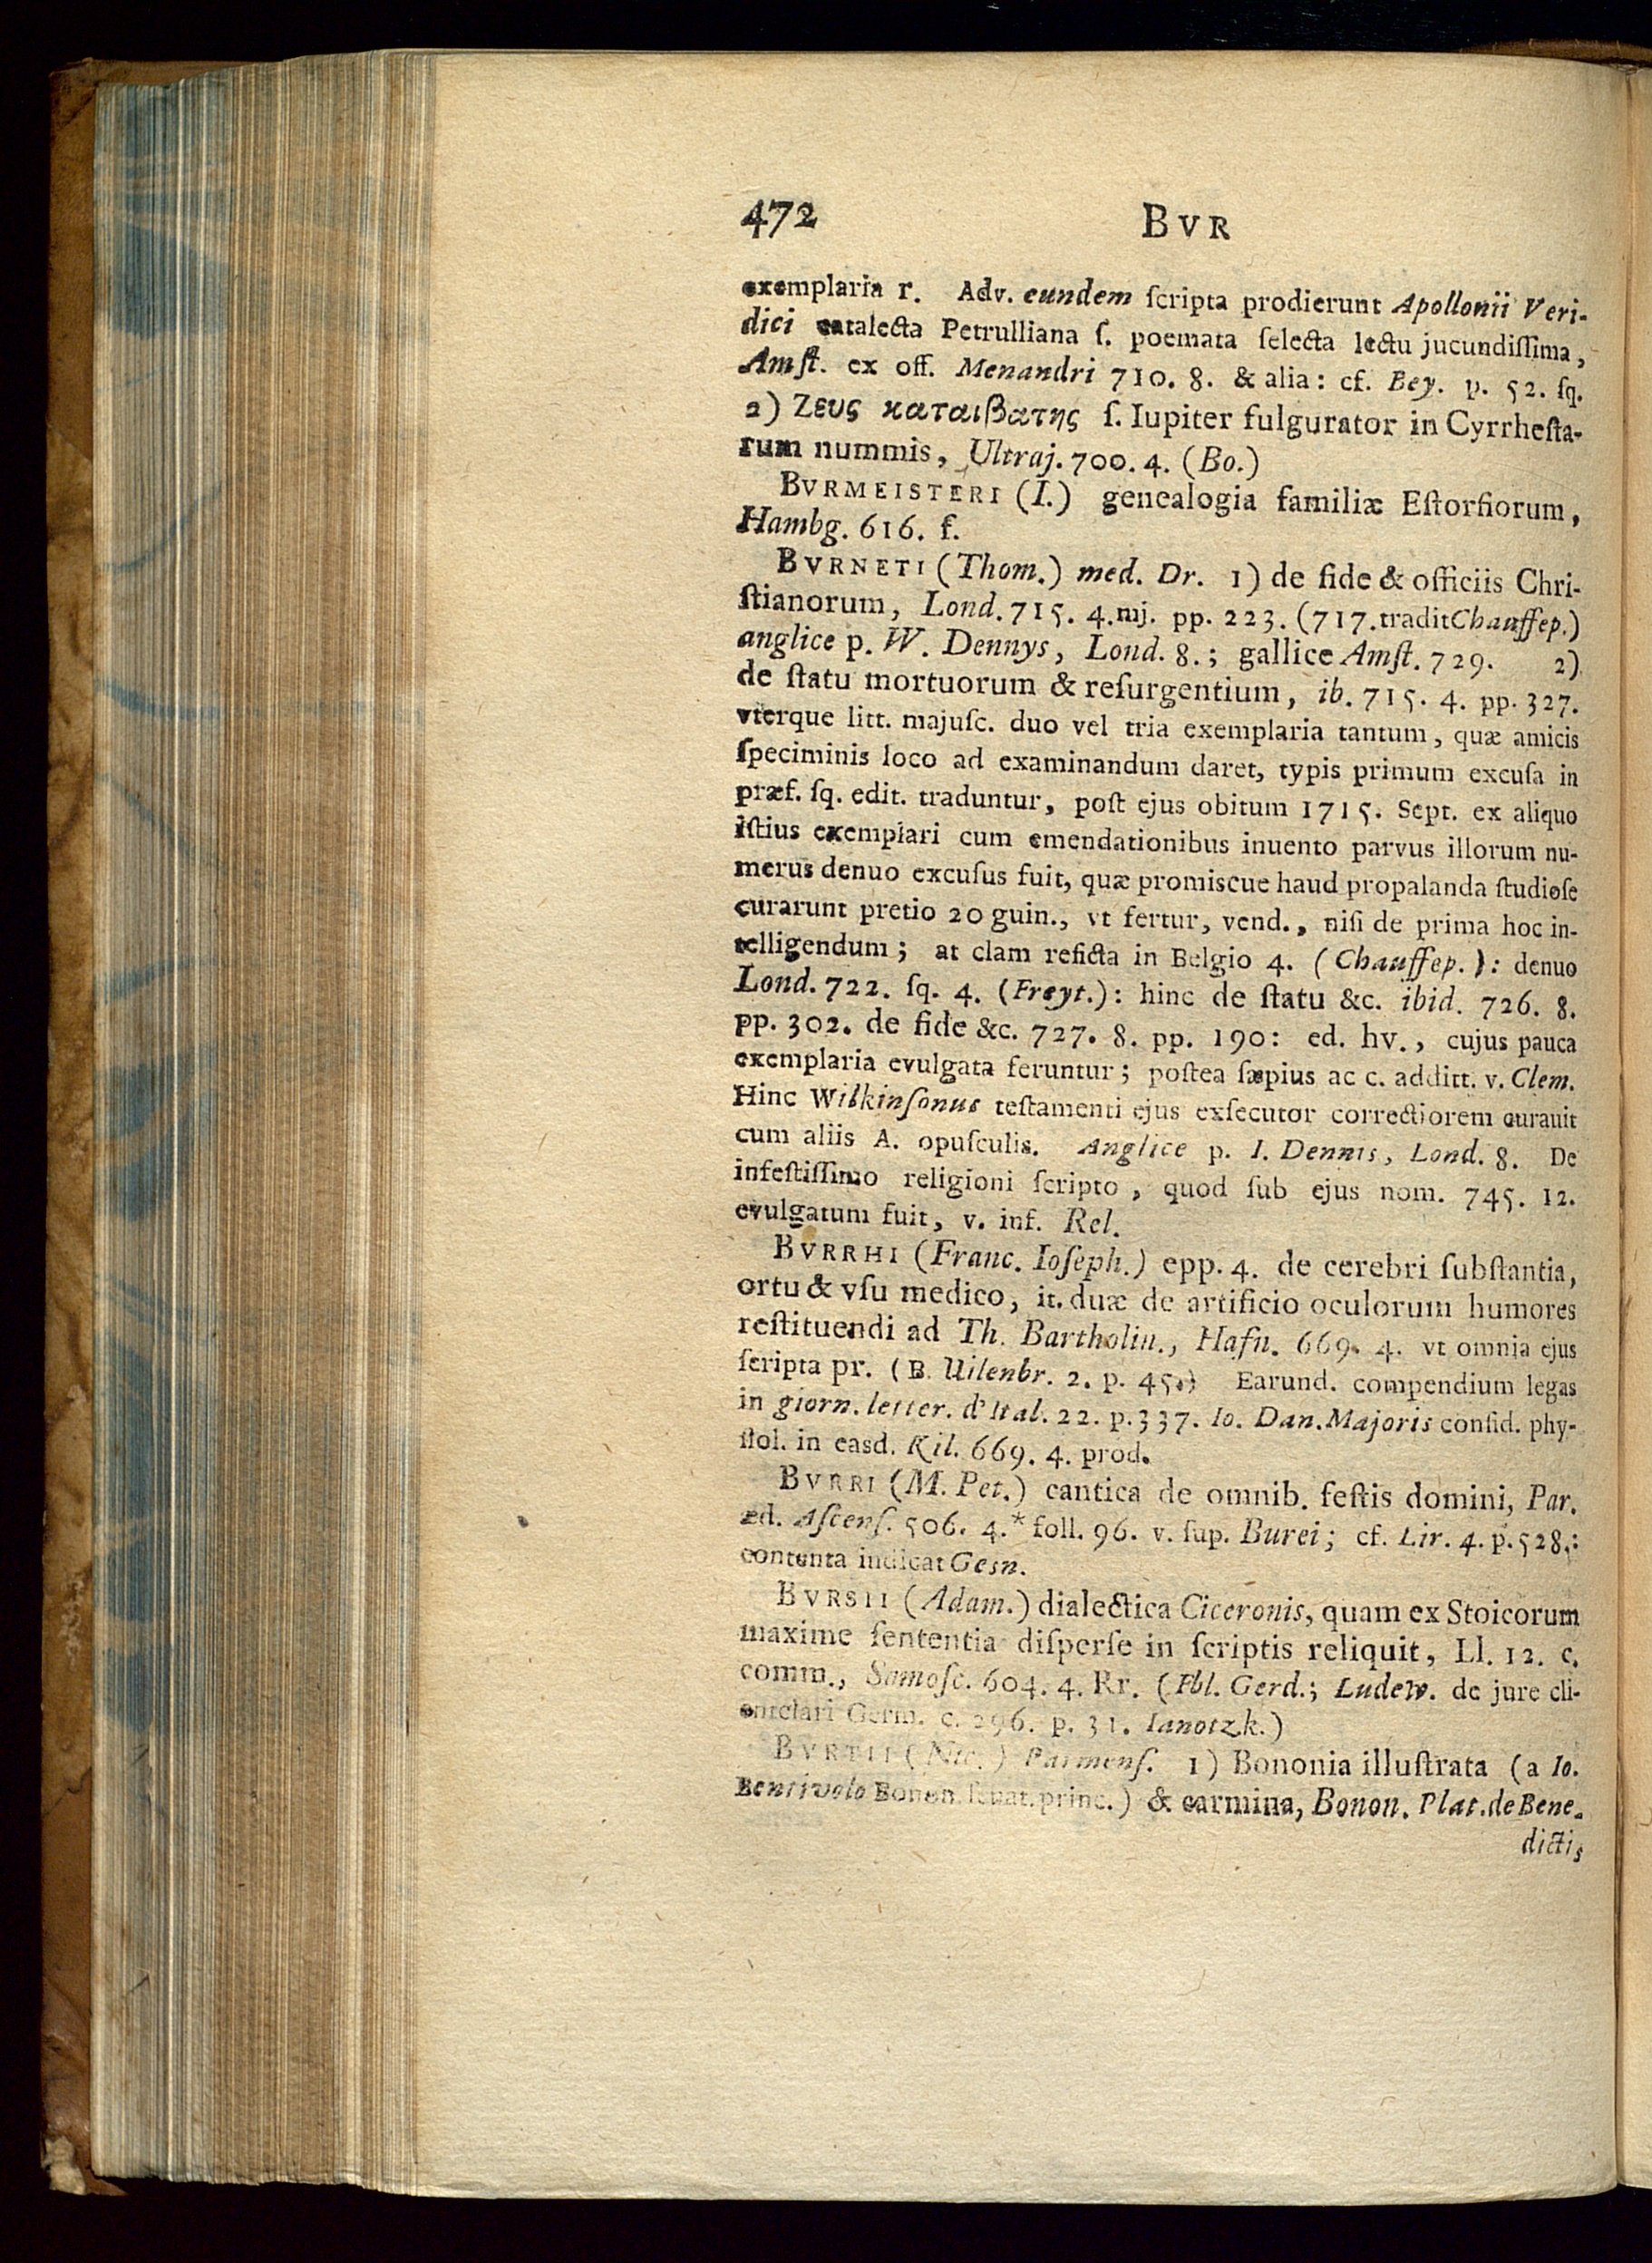 472 BVR
exemplaria r. Adv. eundem ſcripta prodierunt Apollonii Veri-
dici catalecta Petrulliana ſ. poemata ſelecta lectu jucundiſſima,
Amſt. ex off. Menandri 710. 8. & alia: cf. Bey. p. 52. ſq.
2) Ζευς καταιβατης ſ. Iupiter fulgurator in Cyrrheſta-
rum nummis, Ultraj. 700. 4. (Bo.)
BVRMEISTERI (I.) genealogia familiæ Eſtorfiorum,
Hambg. 616. f.
BVRNETI (Thom.) med. Dr. 1) de fide & officiis Chri-
ſtianorum, Lond. 715. 4.mj. pp. 223. (717. tradit Chauffep.)
anglice p. W. Dennys, Lond. 8.; gallice Amſt. 729. 2)
de ſtatu mortuorum & reſurgentium, ib. 715. 4. pp. 327.
vterque litt. majuſc. duo vel tria exemplaria tantum, quæ amicis
ſpeciminis loco ad examinandum daret, typis primum excuſa in
præf. ſq. edit. traduntur, poſt ejus obitum 1715. Sept. ex aliquo
iſtius exemplari cum emendationibus inuento parvus illorum nu-
merus denuo excuſus fuit, quæ promiscue haud propalanda ſtudioſe
curarunt pretio 20 guin., vt fertur, vend., niſi de prima hoc in-
telligendum; at clam reficta in Belgio 4. (Chauffep.): denuo
Lond. 722. ſq. 4. (Freyt.): hinc de ſtatu &c. ibid. 726. 8.
pp. 302. de fide &c. 727. 8. pp. 190: ed. hv., cujus pauca
exemplaria evulgata feruntur; poſtea ſæpius ac c. additt. v. Clem.
Hinc Wilkinſonus teſtamenti ejus exſecutor correctiorem curauit
cum aliis A. opuſculis. Anglice p. I. Dennis, Lond. 8. De
infeſtiſſimo religioni ſcripto, quod ſub ejus nom. 745. 12.
evulgatum fuit, v. inf. Rel.
BVRRHI (Franc. Ioſeph.) epp. 4. de cerebri ſubſtantia,
ortu & vſu medico, it. duæ de artificio oculorum humores
reſtituendi ad Th. Bartholin., Hafn. 669. 4. vt omnia ejus
ſcripta pr. (B. Uilenbr. 2. p. 45.) Earund. compendium legas
in giorn. letter. d'Ital. 22. p. 337. Io. Dan. Majoris conſid. phy-
ſiol. in easd. Kil. 669. 4. prod.
BVRRI (M. Pet.) cantica de omnib. feſtis domini, Par.
æd. Aſcenſ. 506. 4.* foll. 96. v. ſup. Burei; cf. Lir. 4. p. 528.:
contenta indicat Gesn.
BVRSII (Adam.) dialectica Ciceronis, quam ex Stoicorum
maxime ſententia diſperſe in ſcriptis reliquit, Ll. 12. c.
comm., Samoſc. 604. 4. Rr. (Fbl. Gerd.; Ludew. de jure cli-
entelari Germ. c. 296. p. 31. Ianotzk.)
BVRTII (Nic.) Parmenſ. 1) Bononia illuſtrata (a Io.
Bentivolo Bonon. ſenat. princ.) & carmina, Bonon. Plat. de Bene-
dictis